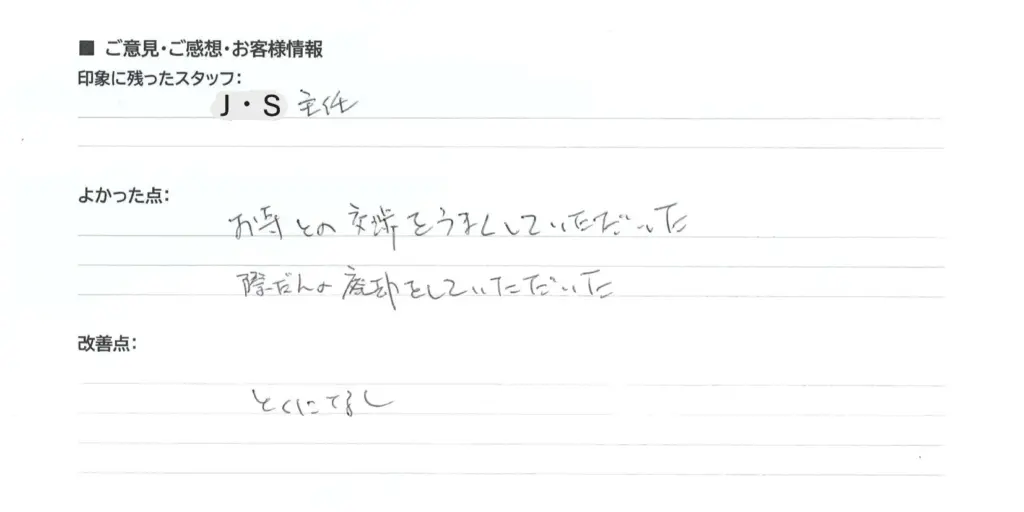 ■ ご意見・ご感想・お客様情報
印象に残ったスタッフ：
J・S 主任
よかった点：
お寺との交渉をうまくしていただいた
廃却をしていただいた
改善点：
とくになし